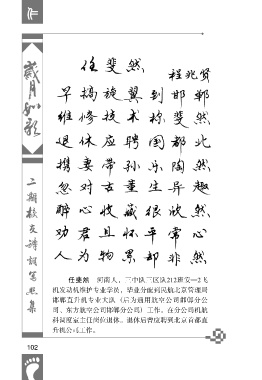 作
岁月如歌
二期校友诗词书画集
任斐然
程兆贤
早搞旋翼到邯郸
维修技术称斐然
退休应聘国都北
携妻带孙乐陶然
忽对古董生异趣
醉心收藏很欣然
劝君且怀平常心
人为物累却非然
任斐然 河南人，三中队三区队212班安—2飞
机发动机维护专业学员，毕业分配到民航北京管理局
邯郸直升机专业大队（后为通用航空公司邯郸分公
司、东方航空公司邯郸分公司）工作。在分公司机航
科调度室主任岗位退休。退休后曾应聘到北京首都直
升机公司工作。
102